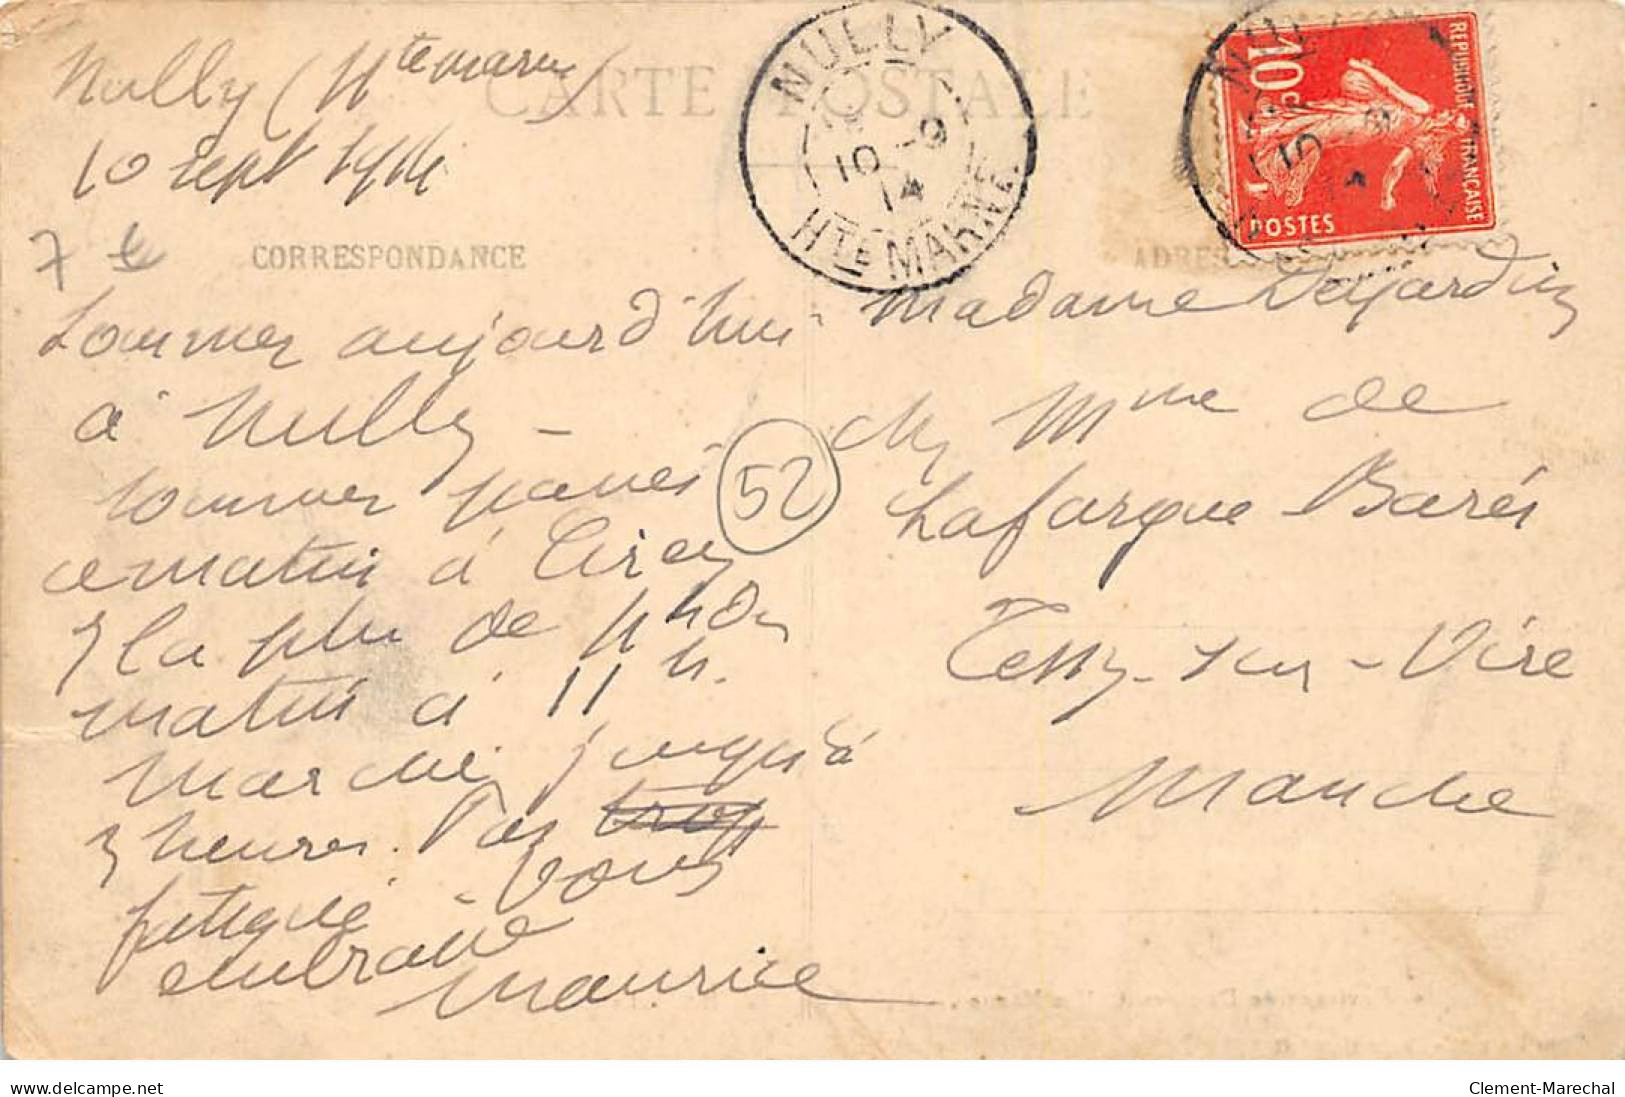 Nully (Hte marne)
10 sept 1914
CARTE POSTALE
NULLY
10 -9
14
HTE MARNE
10c
REPUBLIQUE FRANÇAISE
POSTES
CORRESPONDANCE
ADRES
Sommes aujourd'hui
à Nully -
sommes passés
ce matin à Cirey
la pluie de 4h du
matin à 11h.
Marché jusqu'à
3 heures. Pas trop
fatigué - Vous
embrasse
Maurice
52
Madame Dejardin
chez Mme de
Lafargue Barès
Tessy-sur-Vire
Manche
www.delcampe.net
Clement-Marechal